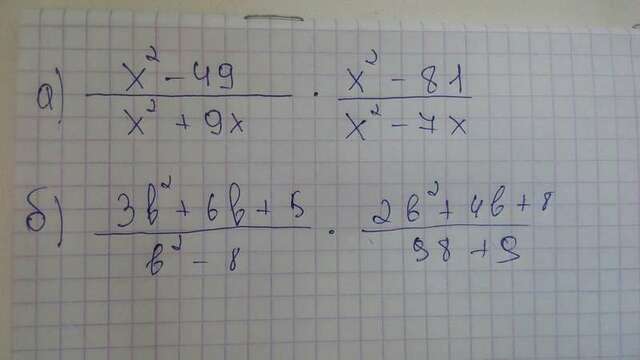 а) x² - 49 / x² + 9x · x² - 81 / x² - 7x
б) 3b² + 6b + 5 / b² - 8 · 2b² + 4b + 8 / 98 + 9